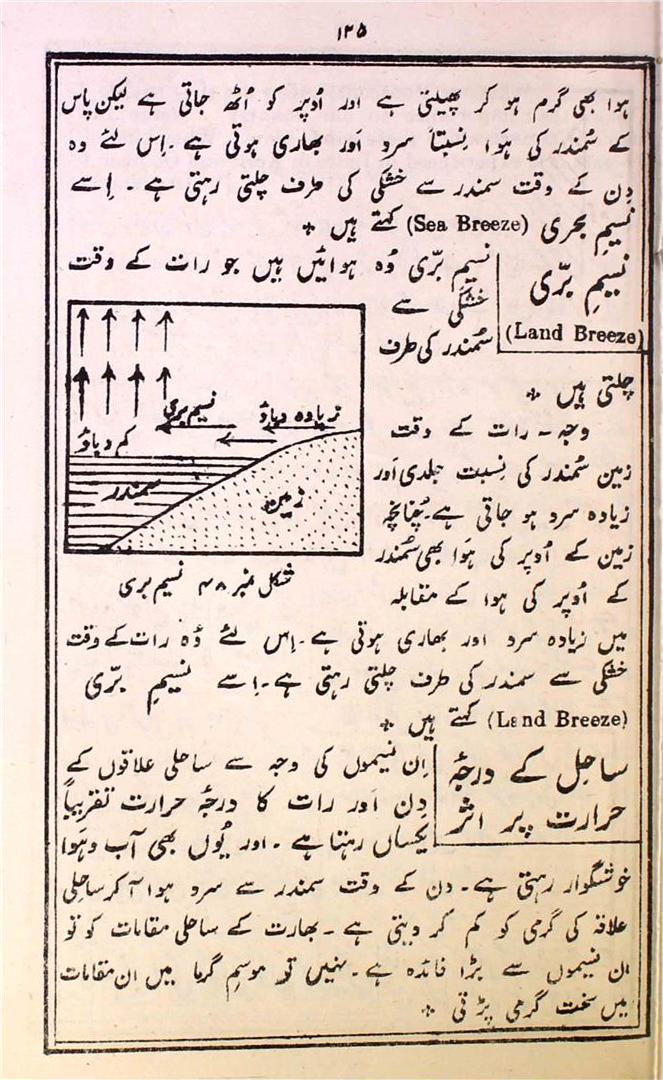 ۱۲۵
ہوا بھی گرم ہو کر پھیلتی ہے اور اُوپر کو اُٹھ جاتی ہے لیکن پاس
کے سُمندر کی ہوا نِسبتاً سرد اَور بھاری ہوتی ہے ۔ اِس لئے وہ
دِن کے وقت سمندر سے خشکی کی طرف چلتی رہتی ہے ۔ اِسے
نسیم بحری (Sea Breeze) کہتے ہیں ٭
نسیمِ برّی
(Land Breeze)
نسیم برّی وُہ ہوائیں ہیں جو رات کے وقت
خشکی سے
سُمندر کی طرف
چلتی ہیں ٭
وجہ ۔ رات کے وقت
زمین سُمندر کی نِسبت جلدی اَور
زیادہ سرد ہو جاتی ہے ۔ چُنانچہ
زمین کے اُوپر کی ہَوا بھی سُمندر
کے اُوپر کی ہوا کے مقابلہ
نسیم بری
زیادہ دباؤ
کم دباؤ
سمندر
زمین
شکل نمبر ۴۸ نسیم بری
میں زیادہ سرد اور بھاری ہوتی ہے ۔ اِس لئے وُہ رات کے وقت
خشکی سے سمندر کی طرف چلتی رہتی ہے ۔ اِسے نسیمِ برّی
(Land Breeze) کہتے ہیں ٭
ساحِل کے درجۂ
حرارت پر اثر
اِن نسیموں کی وجہ سے ساحلی علاقوں کے
دِن اَور رات کا درجۂ حرارت تقریباً
یکساں رہتا ہے ۔ اور یُوں بھی آب و ہَوا
خوشگوار رہتی ہے ۔ دن کے وقت سمندر سے سرد ہوا آ کر ساحلی
علاقہ کی گرمی کو کم کر دیتی ہے ۔ بھارت کے ساحلی مقامات کو تو
ان نسیموں سے بڑا فائدہ ہے ۔ نہیں تو موسمِ گرما میں ان مقامات
میں سخت گرمی پڑتی ٭